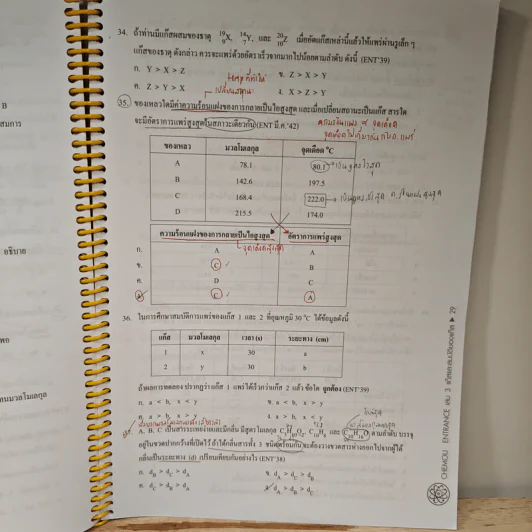 34. ถ้าท่านมีแก๊สผสมของธาตุ ¹⁹₉X, ¹⁴₇Y, และ ²⁰₁₀Z เมื่ออัดแก๊สเหล่านี้แล้วให้แพร่ผ่านรูเล็ก ๆ
แก๊สของธาตุ ดังกล่าว ควรจะแพร่ด้วยอัตราเร็วจากมากไปน้อยตามลำดับ ดังนี้ (ENT'39)
ก. Y > X > Z
ข. Z > X > Y
ค. Z > Y > X
ง. X > Z > Y
35. ของเหลวใดมีค่าความร้อนแฝงของการกลายเป็นไอสูงสุด และเมื่อเปลี่ยนสถานะเป็นแก๊ส สารใด
จะมีอัตราการแพร่สูงสุดในสภาวะเดียวกัน (ENT มี.ค.'42)
ของเหลว มวลโมเลกุล จุดเดือด °C
A 78.1 80.1
B 142.6 197.5
C 168.4 222.0
D 215.5 174.0
ความร้อนแฝงของการกลายเป็นไอสูงสุด อัตราการแพร่สูงสุด
ก. A A
ข. C B
ค. D C
ง. C A
36. ในการศึกษาสมบัติการแพร่ของแก๊ส 1 และ 2 ที่อุณหภูมิ 30 °C ได้ข้อมูลดังนี้
แก๊ส มวลโมเลกุล เวลา (s) ระยะทาง (cm)
1 x 30 a
2 y 30 b
ถ้าผลการทดลอง ปรากฏว่า แก๊ส 1 แพร่ได้เร็วกว่าแก๊ส 2 แล้ว ข้อใด ถูกต้อง (ENT'39)
ก. a < b, x < y
ข. a < b, x > y
ค. a > b, x > y
ง. a > b, x < y
A, B, C เป็นสารระเหยง่ายและมีกลิ่น มีสูตรโมเลกุล
ตามลำดับ บรรจุ
อยู่ในขวดปากกว้างที่เปิดไว้ ถ้าได้กลิ่นสารทั้ง 3 ชนิดพร้อมกัน จะต้องวางขวดสารห่างออกไปจากผู้ได้
กลิ่นเป็นระยะทาง (d) เปรียบเทียบกันอย่างไร (ENT'38)
ก. d_B > d_C > d_A
ข. d_A > d_C > d_B
ค. d_C > d_B > d_A
ง. d_A > d_B > d_C
CHEMOU ENTRANCE เล่ม 3
29
B
สมการ
อธิบาย